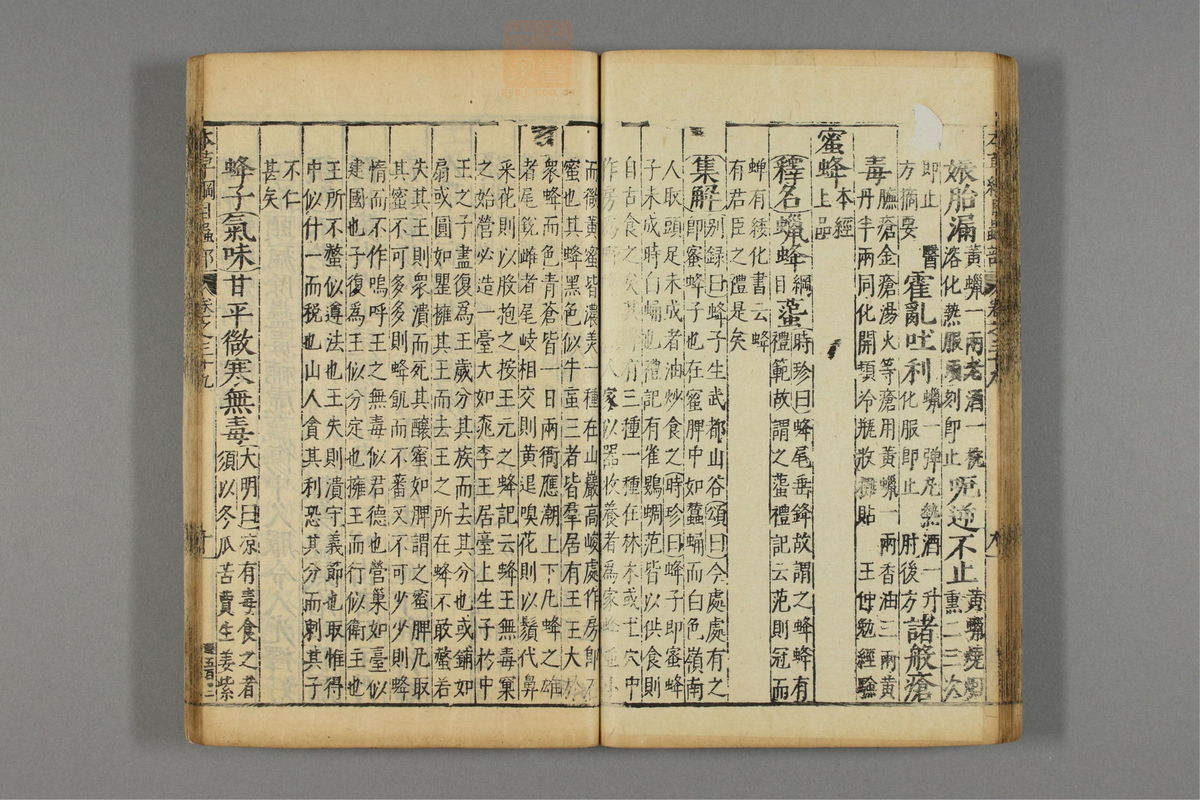 本草綱目蟲部 卷之三十九
娠胎漏
黃蠟一兩老酒一碗
溶化熱服頃刻即止
呃逆不止
黃蠟燒烟
熏二三次
即止
方摘要
霍亂吐利
蠟一彈丸熱酒一升
化服即止 肘後方
諸般瘡
毒
臁瘡金瘡湯火等瘡用黃蠟一兩香油二兩黃
丹半兩同化開頓冷瓶收攤貼 王仲勉經驗
蜜蜂
本經
上品
釋名
蠟蜂
綱目
蠭
時珍曰蜂尾垂鋒故謂之蜂蜂有
禮範故謂之蠭禮記云范則冠而
蟬有緌化書云蜂
有君臣之禮是矣
集解
別録曰蜂子生武都山谷頌曰今處處有之
即蜜蜂子也在蜜脾中如蠶蛹而白色嶺南
人取頭足未成者油炒食之時珍曰蜂子即蜜蜂
子未成時白蛹也禮記有雀鷃蜩范皆以供食則
自古食之矣其蜂有三種一種在林木或土穴中
作房爲野蜂一種人家以器收養者爲家蜂並小
而微黃蜜皆濃美一種在山巖高峻處作房即石
蜜也其蜂黑色似牛䖟三者皆羣居有王王大於
衆蜂而色青蒼皆一日兩衙應潮上下凡蜂之雄
者尾銳雌者尾岐相交則黃退嗅花則以鬚代鼻
采花則以股抱之按王元之蜂記云蜂王無毒窠
之始營必造一臺大如桃李王居臺上生子於中
王之子盡復爲王歲分其族而去其分也或鋪如
扇或圓如罌擁其王而去王之所在蜂不敢螫若
失其王則衆潰而死其釀蜜如脾謂之蜜脾凡取
其蜜不可多多則蜂飢而不蕃又不可少少則蜂
惰而不作嗚呼王之無毒似君德也營巢如臺似
建國也子復爲王似分定也擁王而行似衛主也
王所不螫似遵法也王失則潰守義節也取惟得
中似什一而稅也山人貪其利恐其分而刺其子
不仁
甚矣
蜂子
氣味
甘平微寒無毒
大明曰凉有毒食之者
須以冬瓜苦蕒生姜紫
本草綱目蟲部 卷之三十九